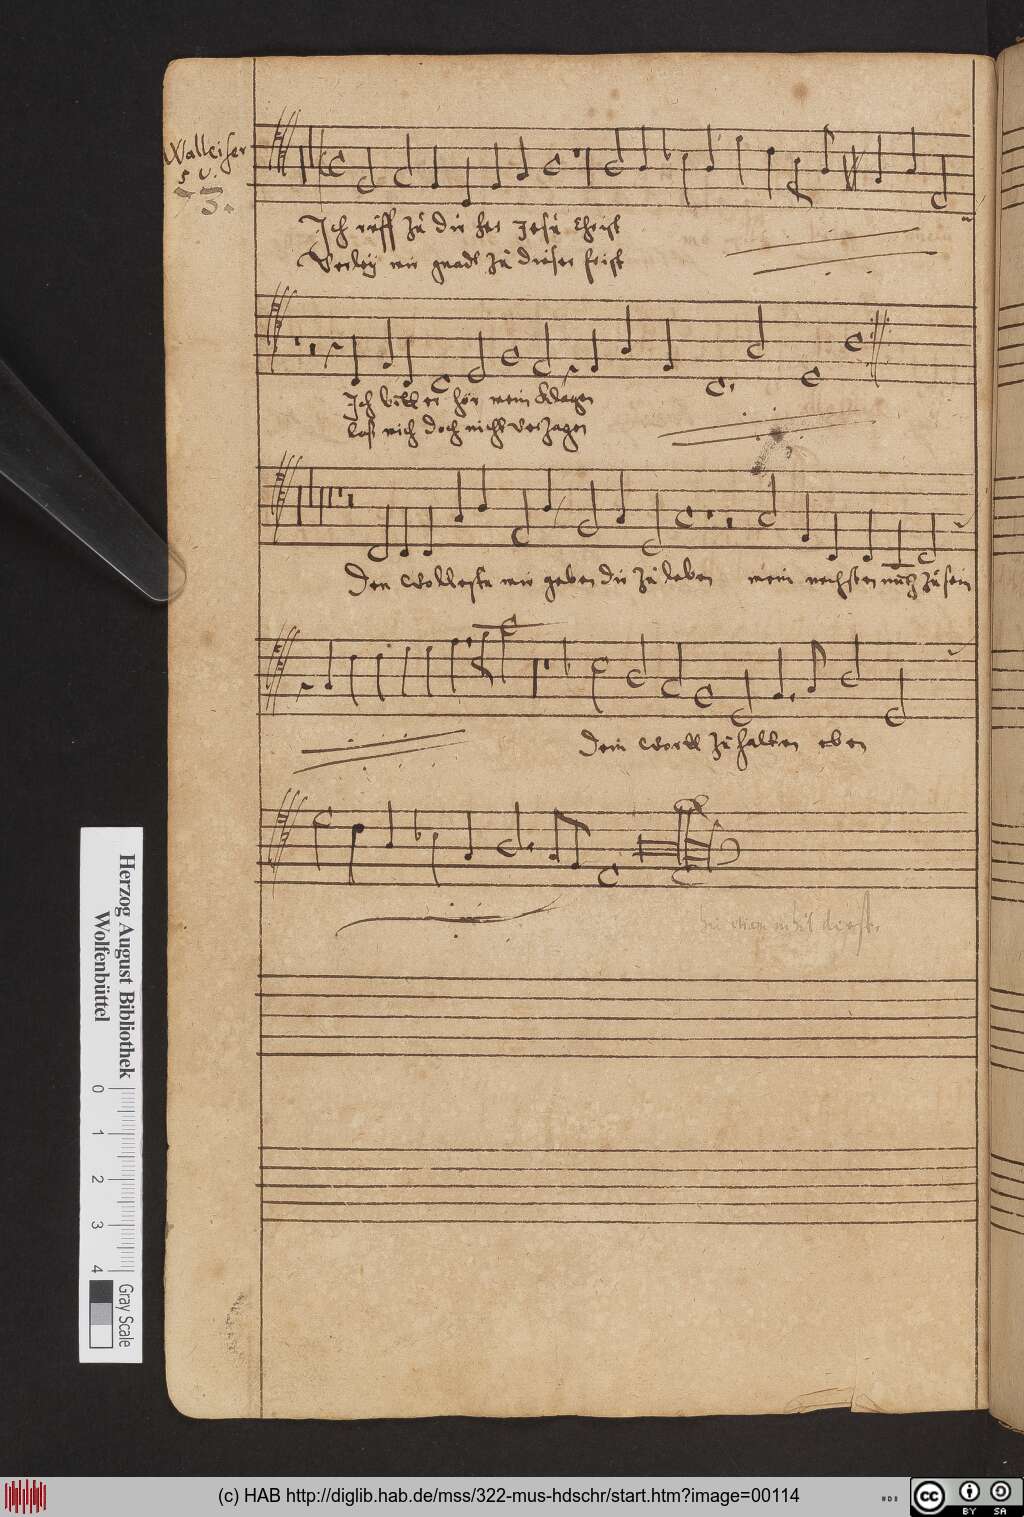 Walleiser
5 v.
73.
Ich rüff zů dir her Jesů Christ
Verleÿ mir gnadt zů dieser frist
Ich bitt er hör mein klagen
las mich doch nicht verzagen
Den wollestu mir geben dir zů leben mein nechsten nütz zů sein
Dein wortt zů halten eben
Herzog August Bibliothek
Wolfenbüttel
0 1 2 3 4
Gray Scale
(c) HAB http://diglib.hab.de/mss/322-mus-hdschr/start.htm?image=00114
cc BY SA